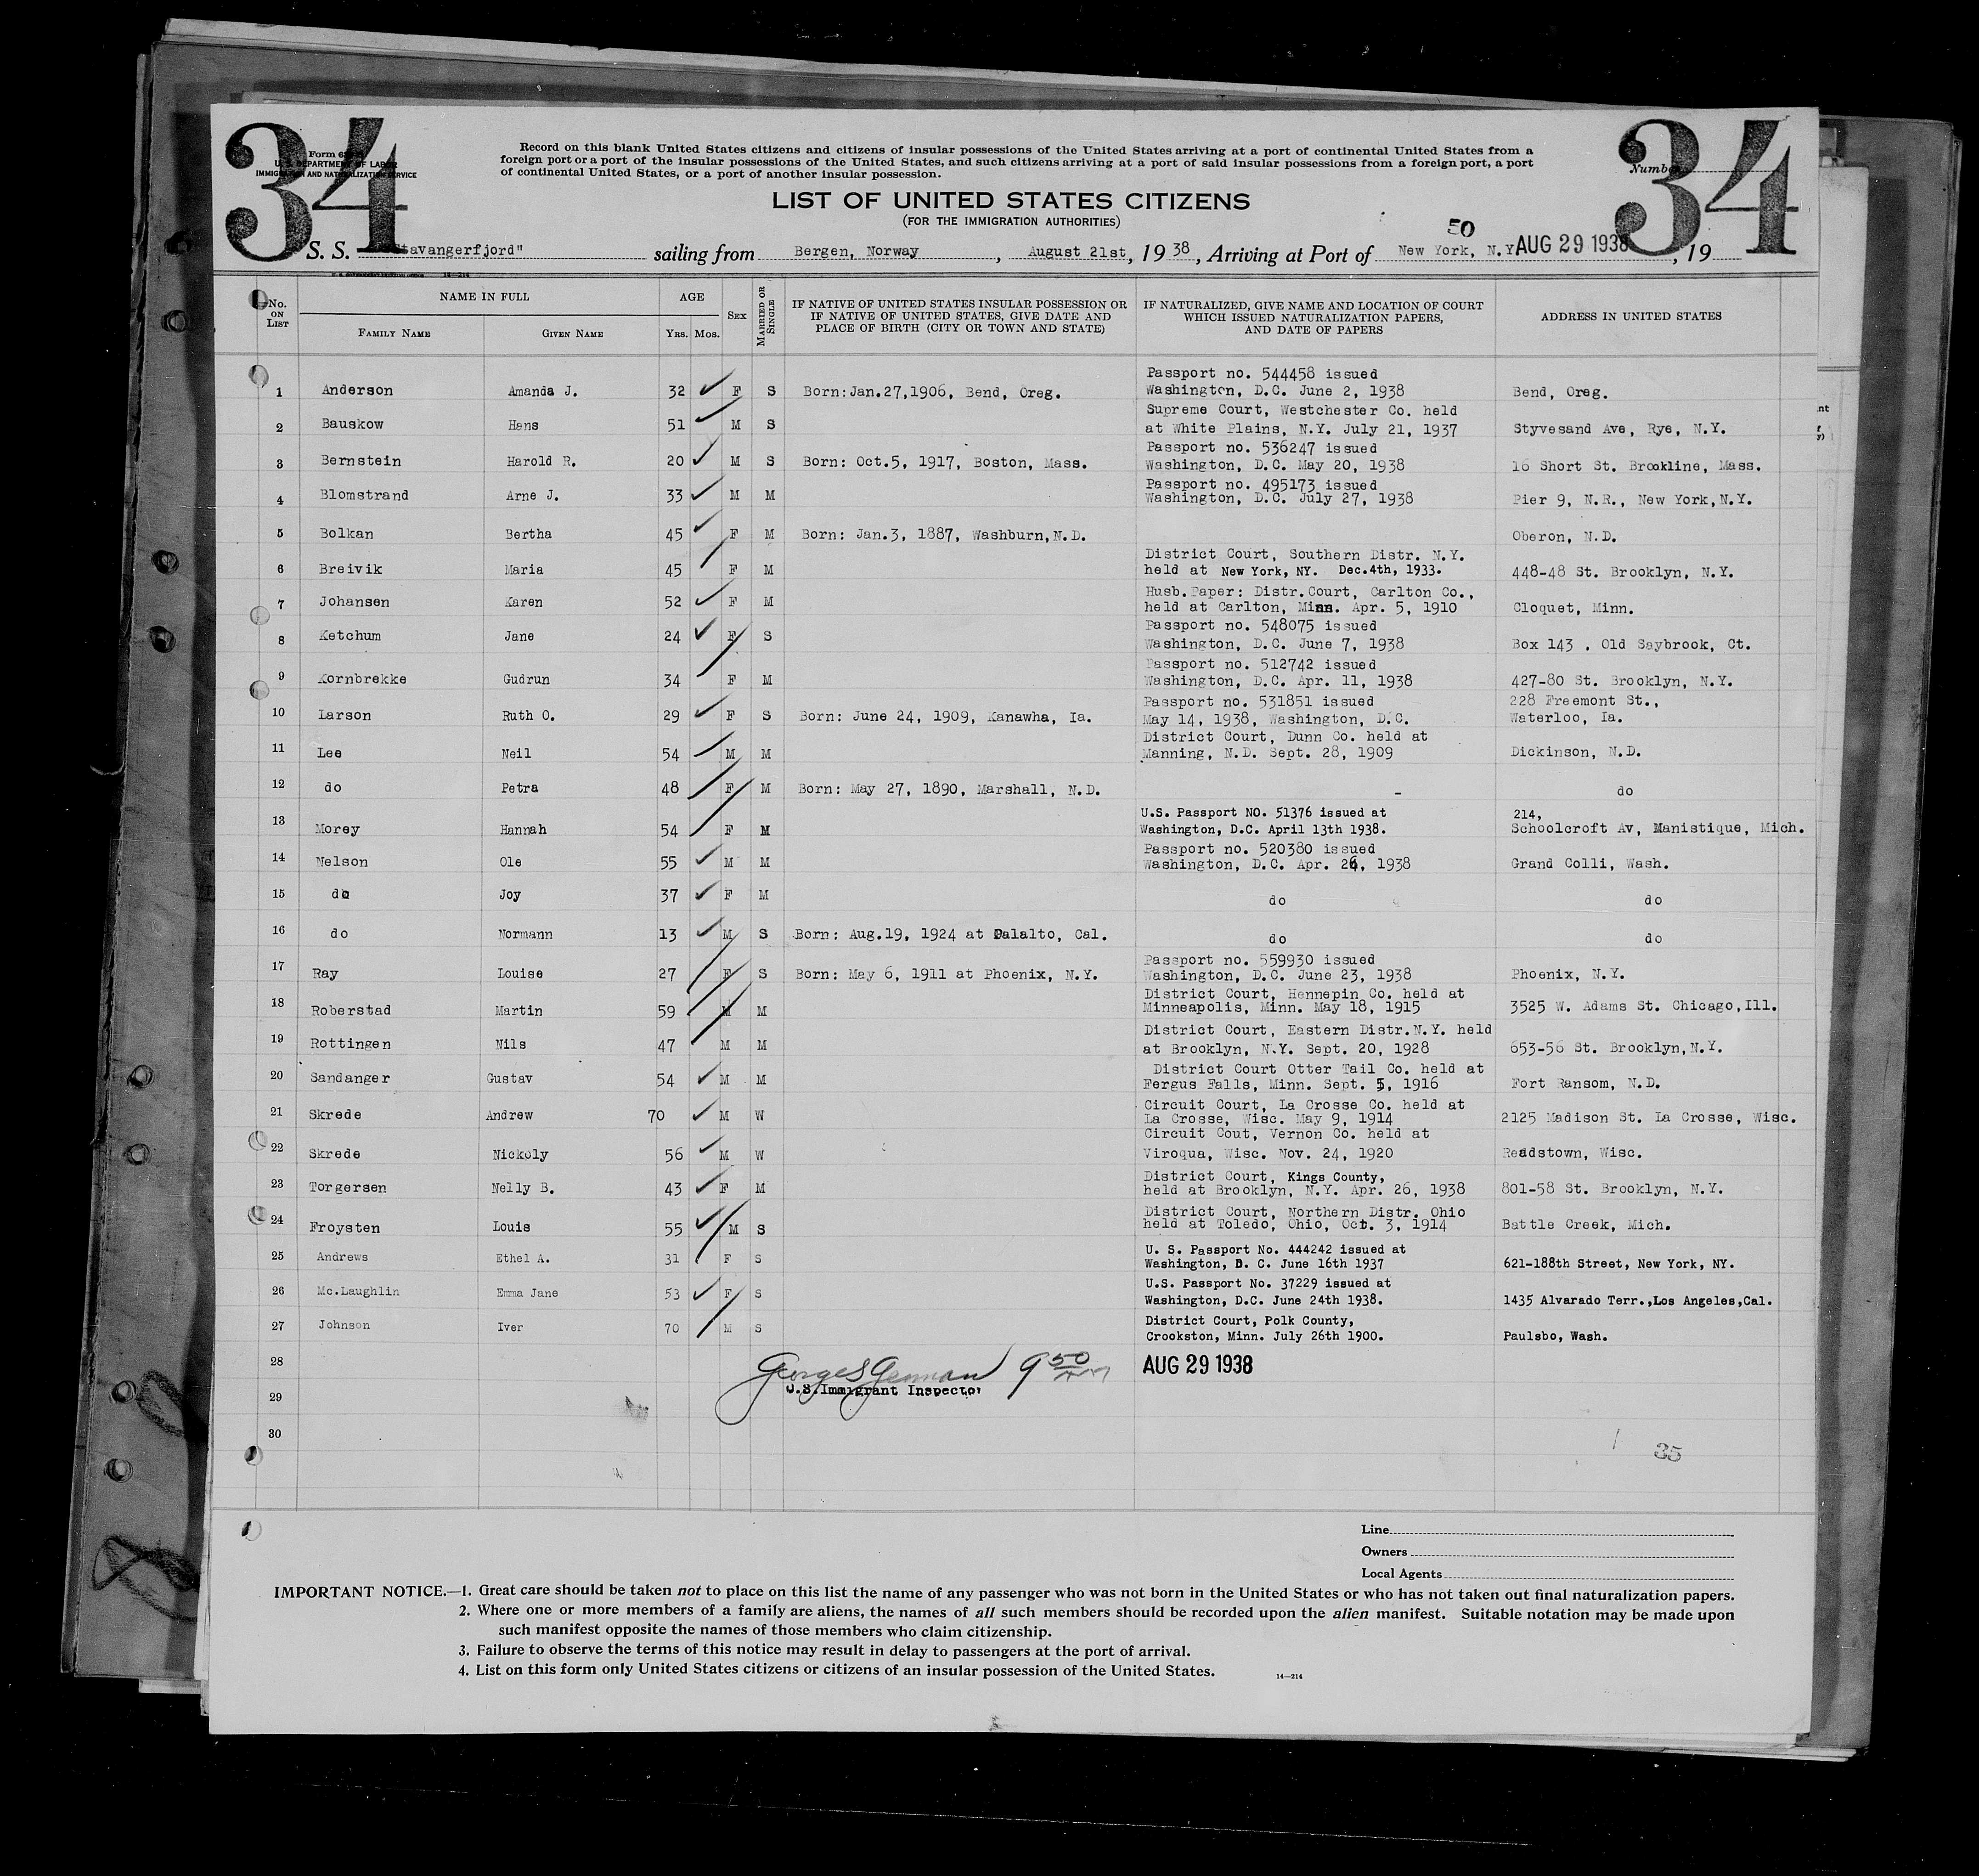 34
34
Form 6
U. S. DEPARTMENT OF LABOR
IMMIGRATION AND NATURALIZATION SERVICE
Record on this blank United States citizens and citizens of insular possessions of the United States arriving at a port of continental United States from a
foreign port or a port of the insular possessions of the United States, and such citizens arriving at a port of said insular possessions from a foreign port, a port
of continental United States, or a port of another insular possession.
Number
LIST OF UNITED STATES CITIZENS
(FOR THE IMMIGRATION AUTHORITIES)
50
S. S. Stavangerfjord" sailing from Bergen, Norway, August 21st, 19 38, Arriving at Port of New York, N.Y. AUG 29 1938, 19
No. on List NAME IN FULL AGE Sex Married or Single IF NATIVE OF UNITED STATES INSULAR POSSESSION OR IF NATIVE OF UNITED STATES, GIVE DATE AND PLACE OF BIRTH (CITY OR TOWN AND STATE) IF NATURALIZED, GIVE NAME AND LOCATION OF COURT WHICH ISSUED NATURALIZATION PAPERS, AND DATE OF PAPERS ADDRESS IN UNITED STATES
Family Name Given Name Yrs. Mos.
Passport no. 544458 issued
1 Anderson Amanda J. 32 F S Born:Jan.27,1906, Bend, Oreg. Washington, D.C. June 2, 1938 Bend, Oreg.
Supreme Court, Westchester Co. held
2 Bauskow Hans 51 M S at White Plains, N.Y. July 21, 1937 Styvesand Ave, Rye, N.Y.
Passport no. 536247 issued
3 Bernstein Harold R. 20 M S Born: Oct.5, 1917, Boston, Mass. Washington, D.C. May 20, 1938 16 Short St. Brookline, Mass.
Passport no. 495173 issued
4 Blomstrand Arne J. 33 M M Washington, D.C. July 27, 1938 Pier 9, N.R., New York,N.Y.
5 Bolkan Bertha 45 F M Born: Jan.3, 1887, Washburn,N.D. Oberon, N.D.
District Court, Southern Distr. N.Y.
6 Breivik Maria 45 F M held at New York, NY. Dec.4th, 1933. 448-48 St. Brooklyn, N.Y.
Husb.Paper: Distr.Court, Carlton Co.,
7 Johansen Karen 52 F M held at Carlton, Minn. Apr. 5, 1910 Cloquet, Minn.
Passport no. 548075 issued
8 Ketchum Jane 24 F S Washington, D.C. June 7, 1938 Box 143 , Old Saybrook, Ct.
Passport no. 512742 issued
9 Kornbrekke Gudrun 34 F M Washington, D.C. Apr. 11, 1938 427-80 St. Brooklyn, N.Y.
Passport no. 531851 issued 228 Freemont St.,
10 Larson Ruth O. 29 F S Born: June 24, 1909, Kanawha, Ia. May 14, 1938, Washington, D.C. Waterloo, Ia.
District Court, Dunn Co. held at
11 Lee Neil 54 M M Manning, N.D. Sept. 28, 1909 Dickinson, N.D.
12 do Petra 48 F M Born: May 27, 1890, Marshall, N.D. - do
U.S. Passport NO. 51376 issued at 214,
13 Morey Hannah 54 F M Washington, D.C. April 13th 1938. Schoolcroft Av, Manistique, Mich.
Passport no. 520380 issued
14 Nelson Ole 55 M M Washington, D.C. Apr. 26, 1938 Grand Colli, Wash.
15 do Joy 37 F M do do
16 do Normann 13 M S Born: Aug.19, 1924 at Palalto, Cal. do do
Passport no. 559930 issued
17 Ray Louise 27 F S Born: May 6, 1911 at Phoenix, N.Y. Washington, D.C. June 23, 1938 Phoenix, N.Y.
District Court, Hennepin Co. held at
18 Roberstad Martin 59 M M Minneapolis, Minn. May 18, 1915 3525 W. Adams St. Chicago,Ill.
District Court, Eastern Distr.N.Y. held
19 Rottingen Nils 47 M M at Brooklyn, N.Y. Sept. 20, 1928 653-56 St. Brooklyn,N.Y.
District Court Otter Tail Co. held at
20 Sandanger Gustav 54 M M Fergus Falls, Minn. Sept. 5, 1916 Fort Ransom, N.D.
Circuit Court, La Crosse Co. held at
21 Skrede Andrew 70 M W La Crosse, Wisc. May 9, 1914 2125 Madison St. La Crosse, Wisc.
Circuit Cout, Vernon Co. held at
22 Skrede Nickoly 56 M W Viroqua, Wisc. Nov. 24, 1920 Readstown, Wisc.
District Court, Kings County,
23 Torgersen Nelly B. 43 F M held at Brooklyn, N.Y. Apr. 26, 1938 801-58 St. Brooklyn, N.Y.
District Court, Northern Distr. Ohio
24 Froysten Louis 55 M S held at Toledo, Ohio, Oct. 3, 1914 Battle Creek, Mich.
U. S. Passport No. 444242 issued at
25 Andrews Ethel A. 31 F S Washington, D. C. June 16th 1937 621-188th Street, New York, NY.
U.S. Passport No. 37229 issued at
26 Mc.Laughlin Emma Jane 53 F S Washington, D.C. June 24th 1938. 1435 Alvarado Terr.,Los Angeles,Cal.
District Court, Polk County,
27 Johnson Iver 70 M S Crookston, Minn. July 26th 1900. Paulsbo, Wash.
28 9 50 AUG 29 1938
U.S.Immigrant Inspector
29
30
35
Line
Owners
Local Agents
IMPORTANT NOTICE.—1. Great care should be taken not to place on this list the name of any passenger who was not born in the United States or who has not taken out final naturalization papers.
2. Where one or more members of a family are aliens, the names of all such members should be recorded upon the alien manifest. Suitable notation may be made upon
such manifest opposite the names of those members who claim citizenship.
3. Failure to observe the terms of this notice may result in delay to passengers at the port of arrival.
4. List on this form only United States citizens or citizens of an insular possession of the United States.
14—214